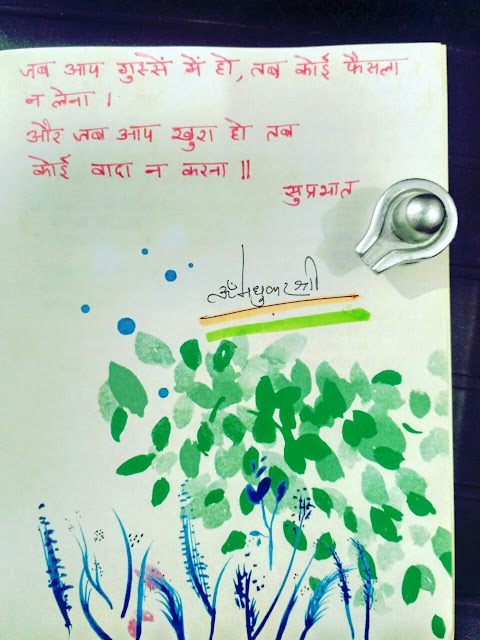 जब आप गुस्सें में हो, तब कोई फैसला
न लेना ।
और जब आप खुश हो तब
कोई वादा न करना ||
सुप्रभात